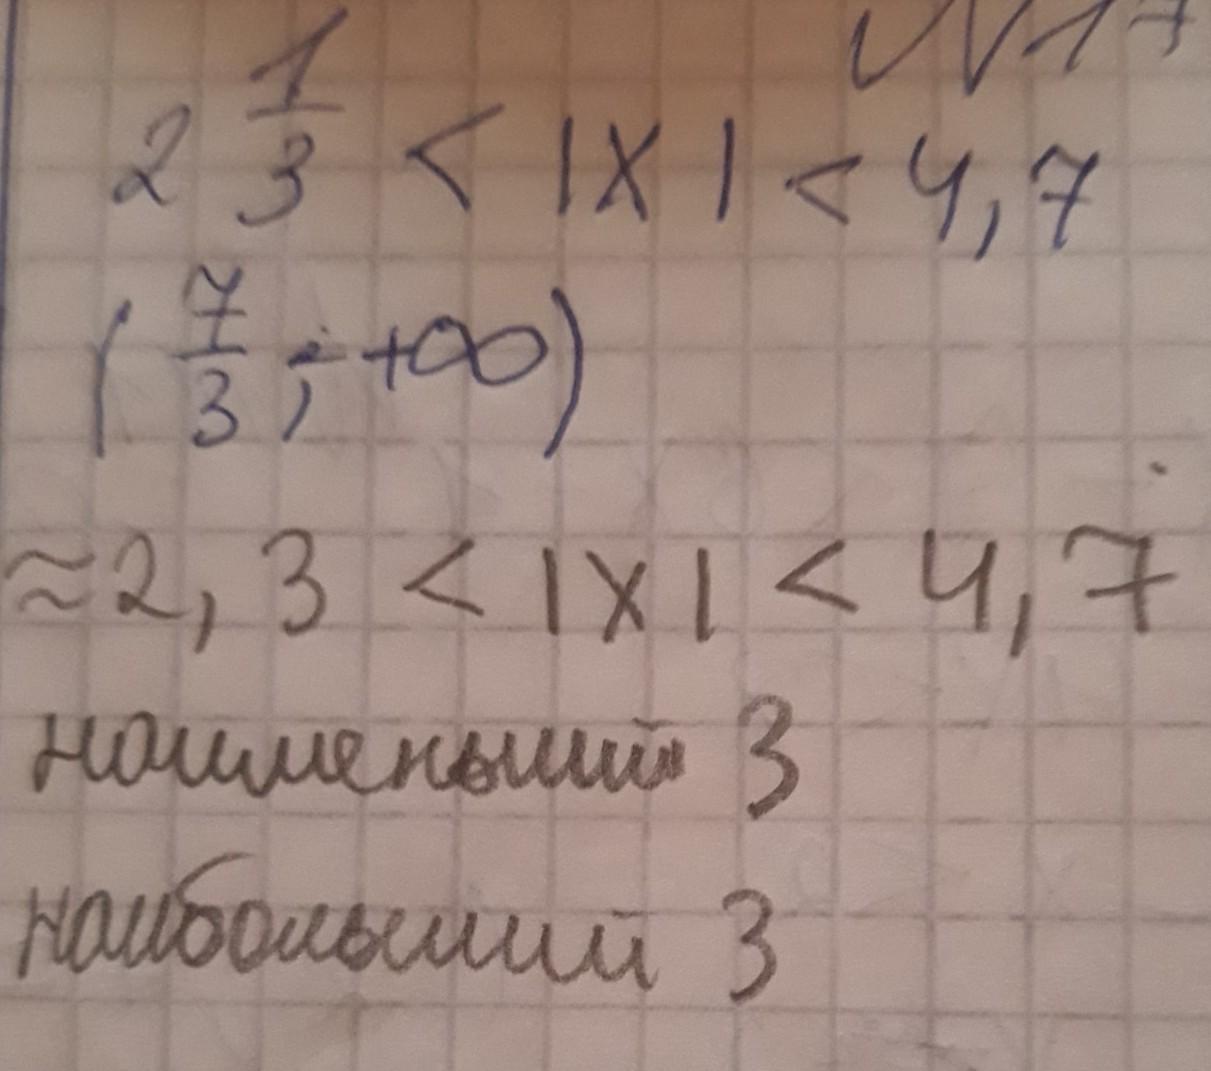 N17
2 1/3 < |x| < 4,7
(7/3; +∞)
≈2,3 < |x| < 4,7
наименьший 3
наибольший 3